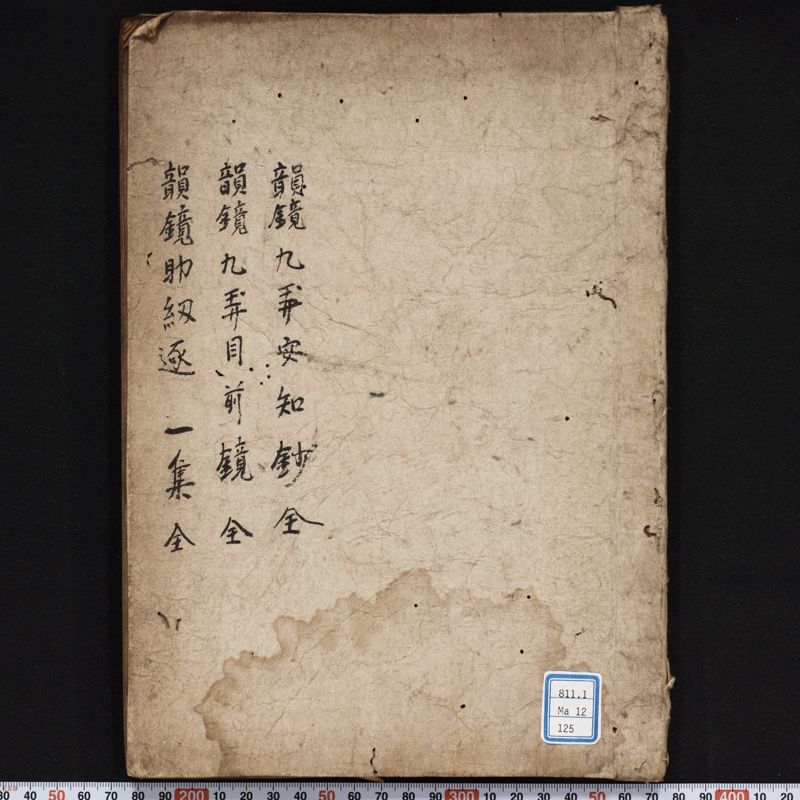 韻鏡九弄安知鈔全
韻鏡九弄目前鏡全
韻鏡助紉逐一集全
811.1
Ma 12
125
30 40 50 60 70 80 90 200 10 20 30 40 50 60 70 80 90 300 10 20 30 40 50 60 70 80 90 400 10 20